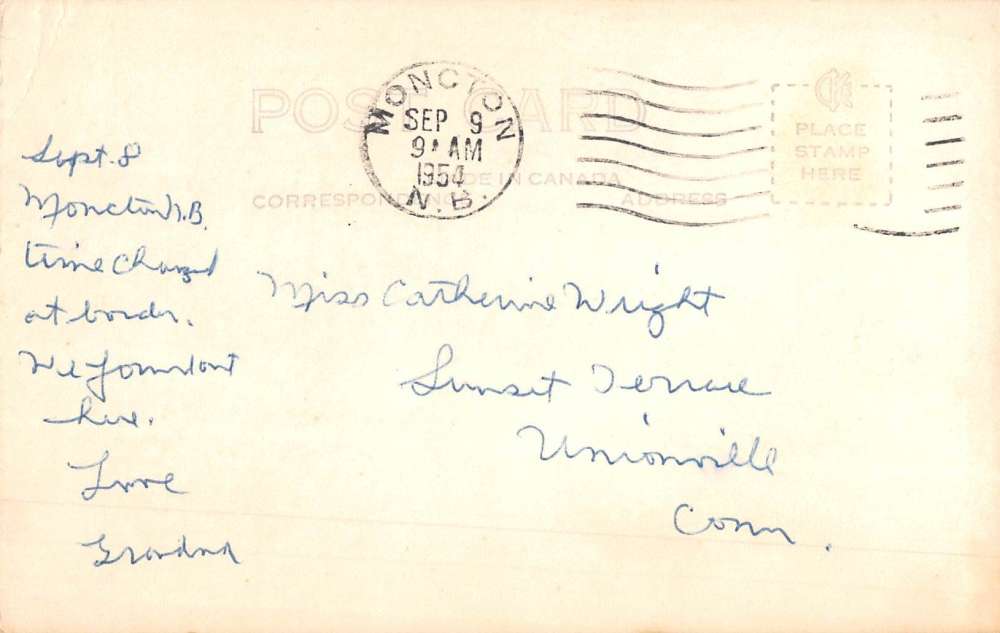 POST CARD
MONCTON
SEP 9
9 AM
1954
N.B.
MADE IN CANADA
CORRESPONDENCE
ADDRESS
CK
PLACE
STAMP
HERE
Sept. 8
Moncton N.B.
time changed
at border.
We found out
here.
Love
Grandma
Miss Catherine Wright
Sunset Terrace
Unionville
Conn.